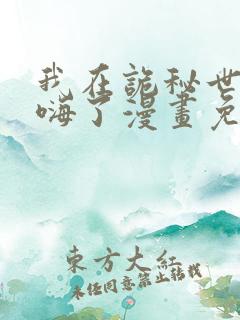 我在詭秘世
嗨了漫畫免
東方大紅
未经同意禁止转载